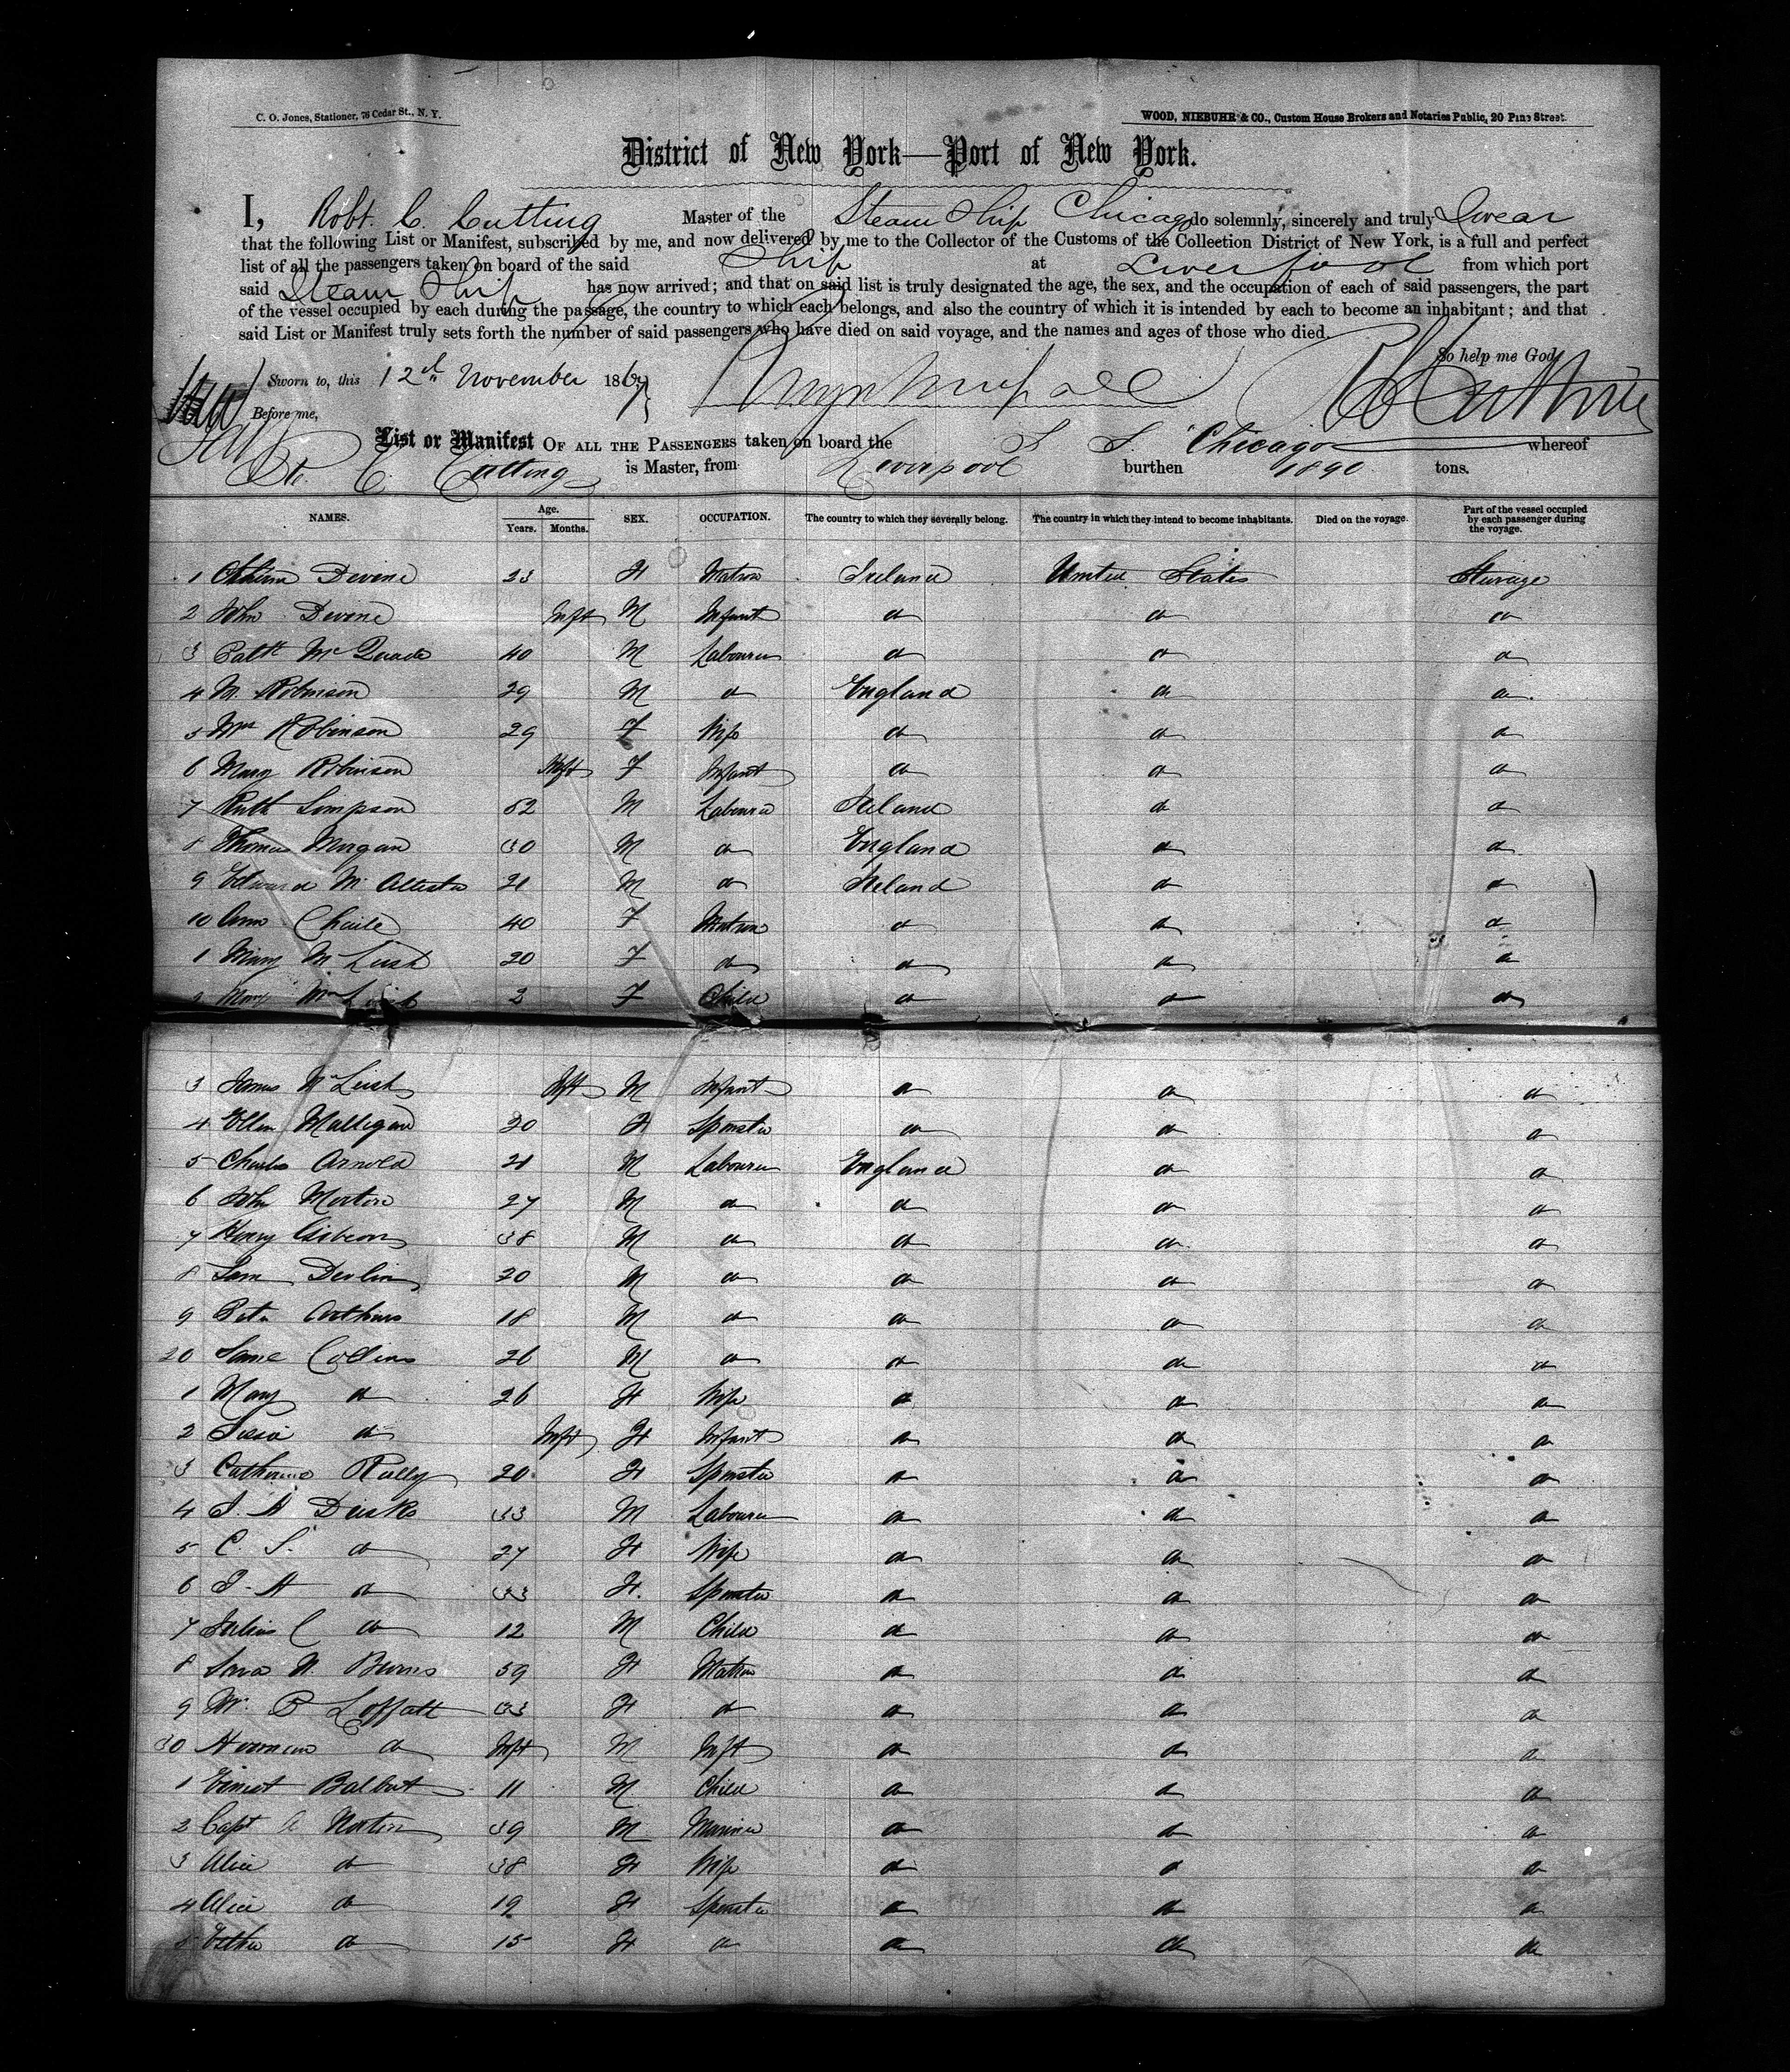 C. O. Jones, Stationer, 76 Cedar St., N. Y.
WOOD, NIEBUHR & CO., Custom House Brokers and Notaries Public, 20 Pine Street.
District of New York—Port of New York.
I, Robt. C. Cutting Master of the Steam Ship Chicago do solemnly, sincerely and truly Swear
that the following List or Manifest, subscribed by me, and now delivered by me to the Collector of the Customs of the Collection District of New York, is a full and perfect
list of all the passengers taken on board of the said Ship at Liverpool from which port
said Steam Ship has now arrived; and that on said list is truly designated the age, the sex, and the occupation of each of said passengers, the part
of the vessel occupied by each during the passage, the country to which each belongs, and also the country of which it is intended by each to become an inhabitant; and that
said List or Manifest truly sets forth the number of said passengers who have died on said voyage, and the names and ages of those who died.
So help me God
Sworn to, this 12th November 1867
Before me,
List or Manifest OF ALL THE PASSENGERS taken on board the S. S. Chicago whereof
C. Cutting is Master, from Liverpool burthen 1890 tons.
NAMES. Age. Years. Months. SEX. OCCUPATION. The country to which they severally belong. The country in which they intend to become inhabitants. Died on the voyage. Part of the vessel occupied by each passenger during the voyage.
1 Devine 23 F Matron Ireland United States Sterage
2 John Devine Inft M Infant do do do
3 Patk McQuade 40 M Labourer do do do
4 M. Robinson 29 M do England do do
5 Mrs Robinson 29 F Wife do do do
6 Mary Robinson Inft F Infant do do do
7 Simpson 52 M Labourer Ireland do do
8 Thomas Morgan 30 M do England do do
9 Edward 21 M do Ireland do do
10 Ann 40 F Matron do do do
1 Mary 20 F do do do do
2 Mary 2 F Child do do do
3 James Inft M Infant do do do
4 Ellen Mulligan 20 F Spinster do do do
5 Charles Arnold 21 M Labourer England do do
6 John 27 M do do do do
7 Henry Gibson 38 M do do do do
8 Sam Devlin 20 M do do do do
9 Peter 18 M do do do do
20 Collins 26 M do do do do
1 Mary do 26 F Wife do do do
2 do Inft F Infant do do do
3 Catherine 20 F Spinster do do do
4 33 M Labourer do do do
5 C. S. do 27 F Wife do do do
6 do 33 F Spinster do do do
7 Julius C do 12 M Child do do do
8 59 F Matron do do do
9 33 F do do do do
30 Herman do Inft M Inft do do do
1 Ernest 11 M Child do do do
2 Capt 39 M Mariner do do do
3 Alice do 38 F Wife do do do
4 Alice do 19 F Spinster do do do
5 do 15 F do do do do